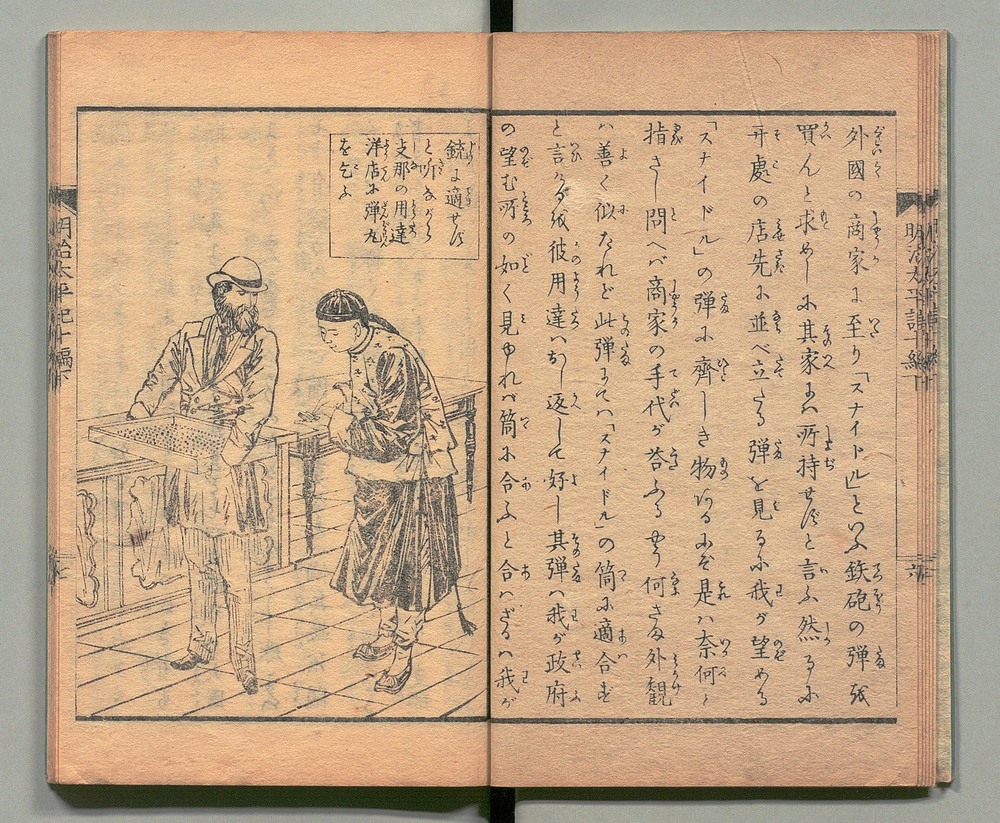 外國の商家に至り「スナイドル」といふ鉄砲の弾を
買んと求めしに其家にハ所持せずと言ふ然るに
其處の店先に並べ立たる弾を見るに我が望める
「スナイドル」の弾に齊しき物あるにぞ是ハ奈何と
指さし問へバ商家の手代が答ふる やう何さま外観
ハ善く似たれど此弾にてハ「スナイドル」の筒に適合せず
と言へるを彼用達ハおし返して好し其弾ハ我が政府
の望む所の如く見ゆれバ筒に合ふと合ハざるハ我が
銃に適せず
と听ながら
支那の用達
洋店に弾丸
を乞ふ
明治太平記十編下
六